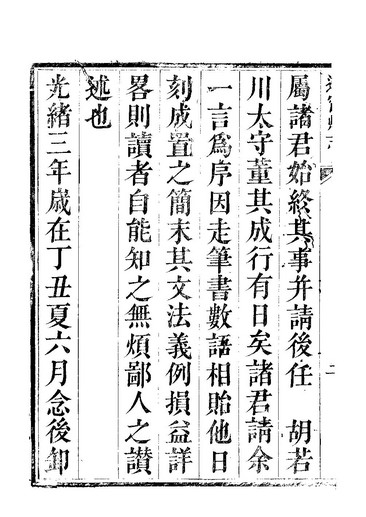 屬諸君始終其事并請後任　胡若
川太守董其成行有日矣諸君請余
一言爲序因走筆書數語相貽他日
刻成置之簡末其文法義例損益詳
畧則讀者自能知之無煩鄙人之讃
述也
光緒三年歲在丁丑夏六月念後卸